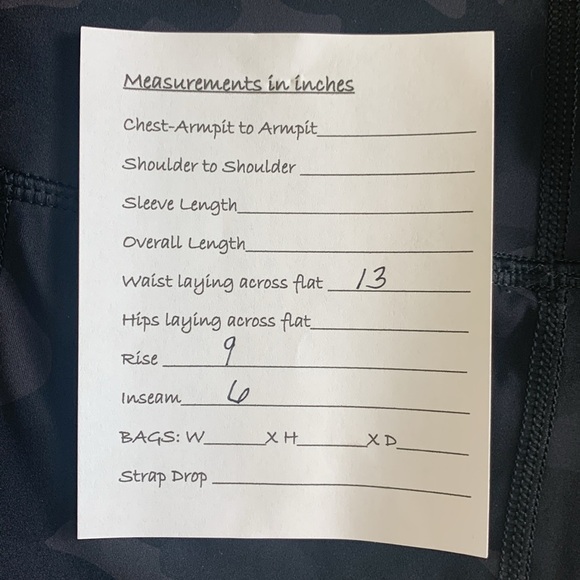 Measurements in inches
Chest-Armpit to Armpit
Shoulder to Shoulder
Sleeve Length
Overall Length
Waist laying across flat 13
Hips laying across flat
Rise 9
Inseam 6
BAGS: W______X H______X D______
Strap Drop